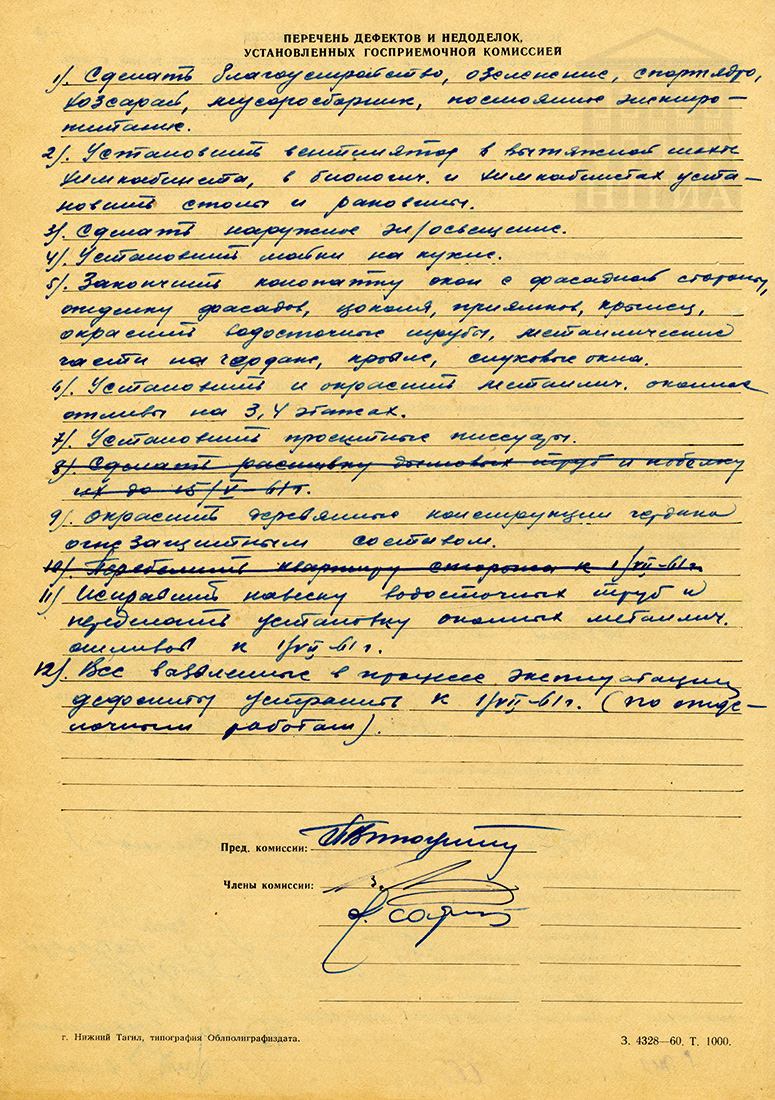 ПЕРЕЧЕНЬ ДЕФЕКТОВ И НЕДОДЕЛОК,
УСТАНОВЛЕННЫХ ГОСПРИЕМОЧНОЙ КОМИССИЕЙ
1). Сделать благоустройство, озеленение, спортядро,
хозсарай, мусоросборник, постоянное электро-
питание.
2). Установить вентилятор в вытяжной шахте
химкабинета, в биологич. и химкабинетах уста-
новить столы и раковины.
3). Сделать наружное эл/освещение.
4). Установить мойки на кухне.
5). Закончить конопатку окон с фасадной стороны,
отделку фасадов, цоколя, приямков, крылец,
окрасить водосточные трубы, металлические
части на чердаке, крыше, слуховые окна.
6). Установить и окрасить металлич. оконные
отливы на 3, 4 этажах.
7). Установить проектные писсуары.
8). Сделать расшивку дымовых труб и побелку
их до 15/V-61г.
9). Окрасить деревянные конструкции чердака
огнезащитным составом.
10). Перебелить квартиру сторожа к 1/VII-61г.
11) Исправить навеску водосточных труб и
переделать установку оконных металлич.
отливов к 1/VII-61г.
12). Все выявленные в процессе эксплуатации
дефекты устранить к 1/VII-61г. (по отде-
лочным работам).
Пред. комиссии:
Члены комиссии:
г. Нижний Тагил, типография Облполиграфиздата.
З. 4328—60. Т. 1000.